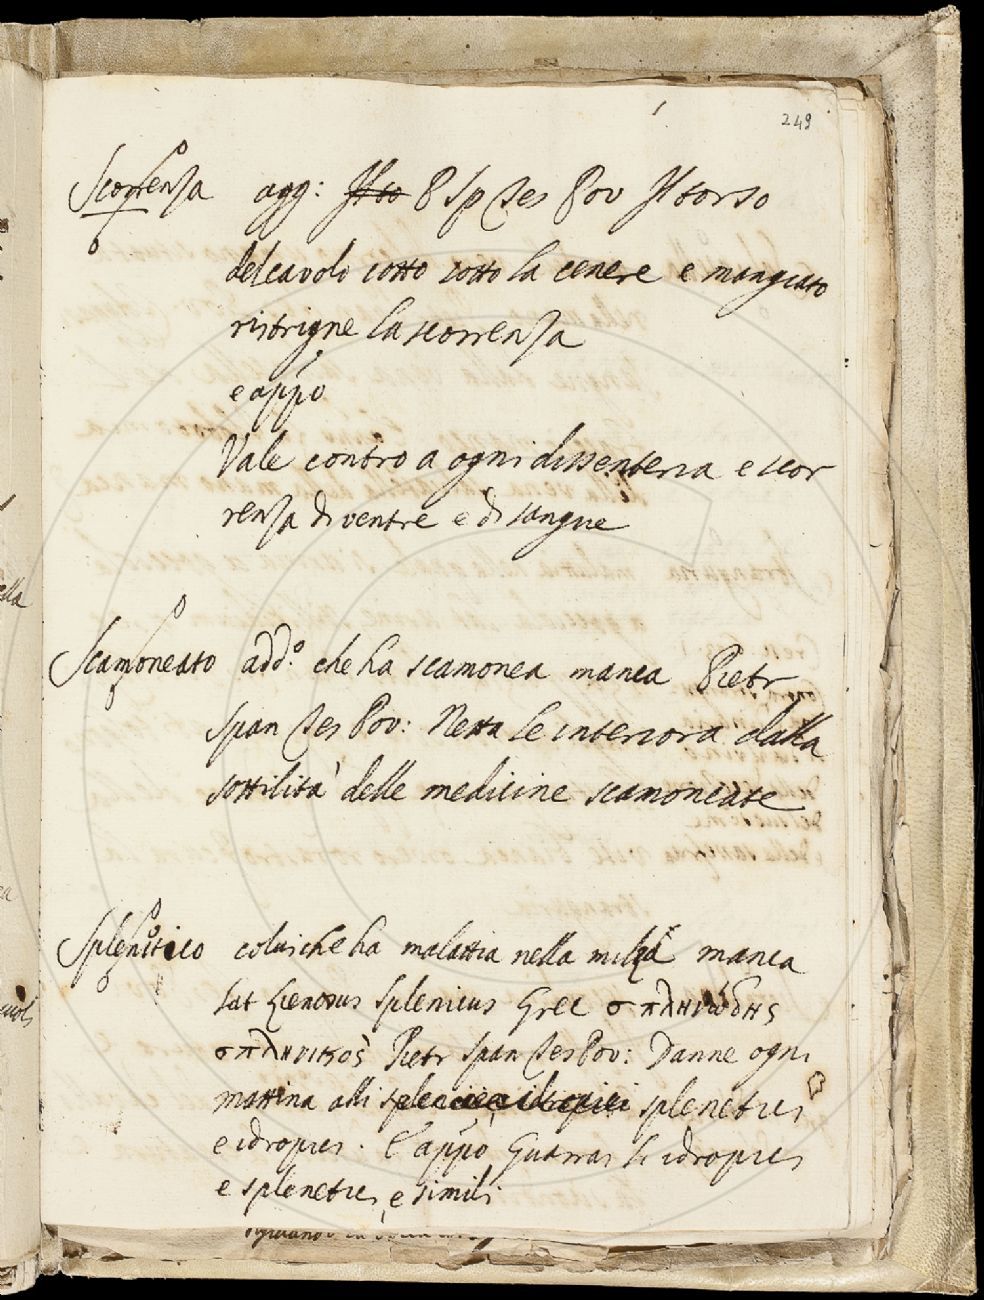 249
Scorrenza agg: Il to P Sp Tes Pov Il torso
del cavolo cotto sotto la cenere e mangiato
ristrigne la scorrenza
e app͂o
Vale contro a ogni dissenteria e scor
renza di ventre e di sangue
Scamoneato add.º che ha scamonea manca Pietr
Span Tes Pov: Netta le interiora dalla
sottilità delle medicine scamoneate
Splenitico colui che ha malattia nella milza manca
lat Lienosus Splenicus Grec σπληνώδης
σπληνικὸς Pietr Span Tes Pov: Danne ogni
mattina alli splenetici
e idropici. E app͂o Guarra li idropici
e splenetici e simili